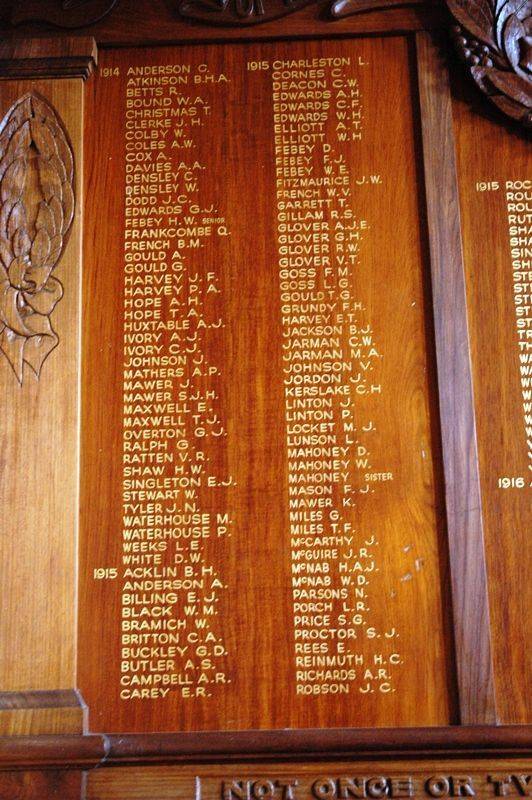 1914 ANDERSON C.
ATKINSON B.H.A.
BETTS R.
BOUND W.A.
CHRISTMAS T.
CLERKE J.H.
COLBY W.
COLES A.W.
COX A.
DAVIES A.A.
DENSLEY C.
DENSLEY W.
DODD J.C.
EDWARDS G.J.
FEBEY H.W. SENIOR
FRANKCOMBE Q.
FRENCH B.M.
GOULD A.
GOULD G.
HARVEY J.F.
HARVEY P.A.
HOPE A.H.
HOPE T.A.
HUXTABLE A.J.
IVORY A.J.
IVORY C.J.
JOHNSON J.
MATHERS A.P.
MAWER J.
MAWER S.J.H.
MAXWELL E.
MAXWELL T.J.
OVERTON G.J.
RALPH G.
RATTEN V.R.
SHAW H.W.
SINGLETON E.J.
STEWART W.
TYLER J.N.
WATERHOUSE M.
WATERHOUSE P.
WEEKS L.E.
WHITE D.W.
1915 ACKLIN B.H.
ANDERSON A.
BILLING E.J.
BLACK W.M.
BRAMICH W.
BRITTON C.A.
BUCKLEY G.D.
BUTLER A.S.
CAMPBELL A.R.
CAREY E.R.
1915 CHARLESTON L.
CORNES C.
DEACON C.W.
EDWARDS A.H.
EDWARDS C.F.
EDWARDS W.H.
ELLIOTT A.T.
ELLIOTT W.H
FEBEY D.
FEBEY F.J.
FEBEY W.E.
FITZMAURICE J.W.
FRENCH W.V.
GARRETT T.
GILLAM R.S.
GLOVER A.J.E.
GLOVER G.H.
GLOVER R.W.
GLOVER V.T.
GOSS F.M.
GOSS L.G.
GOULD T.G.
GRUNDY F.H.
HARVEY E.T.
JACKSON B.J.
JARMAN C.W.
JARMAN M.A.
JOHNSON V.
JORDON J.
KERSLAKE C.H
LINTON J.
LINTON P.
LOCKET M.J.
LUNSON L.
MAHONEY D.
MAHONEY W.
MAHONEY SISTER
MASON F.J.
MAWER K.
MILES G.
MILES T.F.
McCARTHY J.
McGUIRE J.R.
McNAB H.A.J.
McNAB W.D.
PARSONS N.
PORCH L.R.
PRICE S.G.
PROCTOR S.J.
REES E.
REINMUTH H.C.
RICHARDS A.R.
ROBSON J.C.
1915
1916
NOT ONCE OR